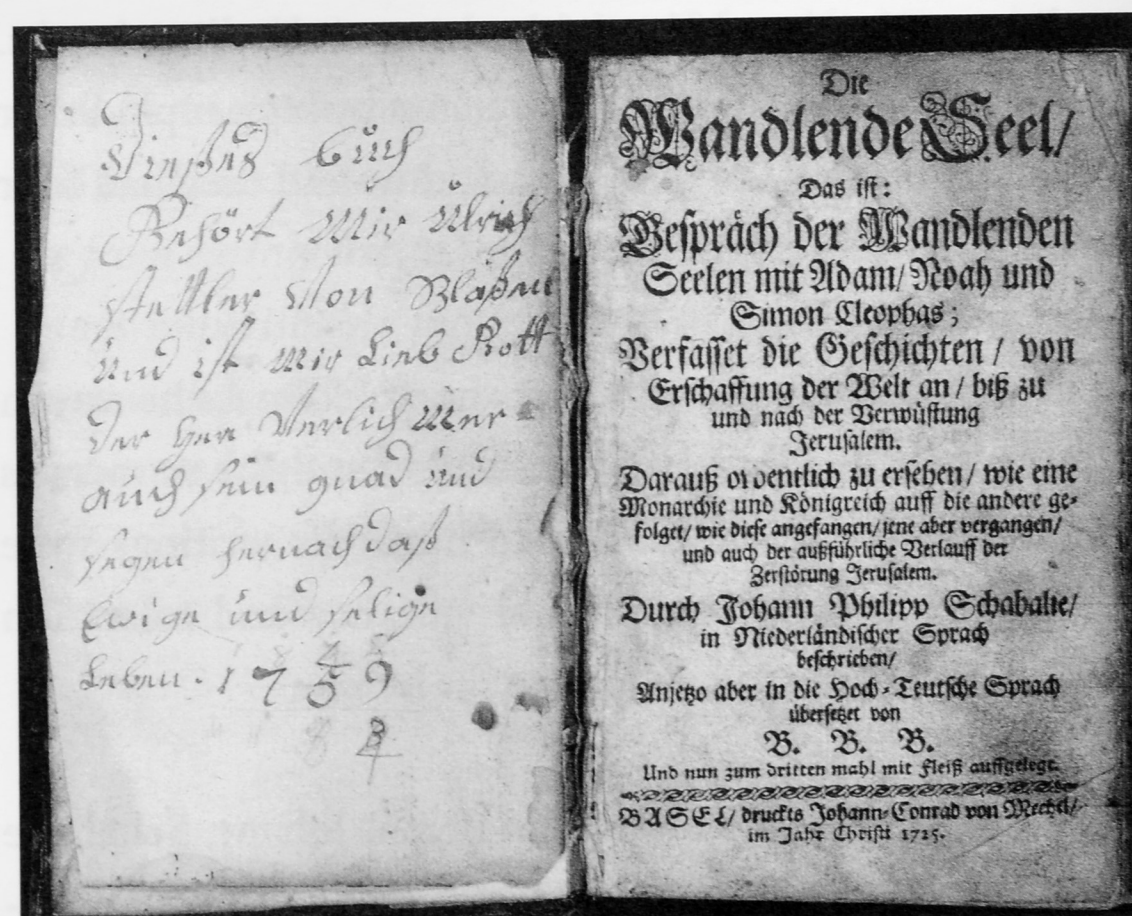 Dießes buch
Gehört Mir Ulrich
stettler Von Blaßen
Und ist Mir Lieb Gott
der Herr Verlich Mer
auch sein gnad und
segen hernach daß
Ewige und selige
Leben. 1759
Die
Wandlende Seel/
Das ist:
Gespräch der Wandlenden
Seelen mit Adam/ Noah und
Simon Cleophas;
Verfasset die Geschichten/ von
Erschaffung der Welt an/ biß zu
und nach der Verwüstung
Jerusalem.
Darauß ordentlich zu ersehen/ wie eine
Monarchie und Königreich auff die andere ge-
folget/ wie diese angefangen/ jene aber vergangen/
und auch der außführliche Verlauff der
Zerstörung Jerusalem.
Durch Johann Philipp Schabalie/
in Niederländischer Sprach
beschrieben/
Anjetzo aber in die Hoch-Teutsche Sprach
übersetzet von
B. B. B.
Und nun zum dritten mahl mit Fleiß auffgelegt.
BASEL/ druckts Johann-Conrad von Mechel/
im Jahr Christi 1725.